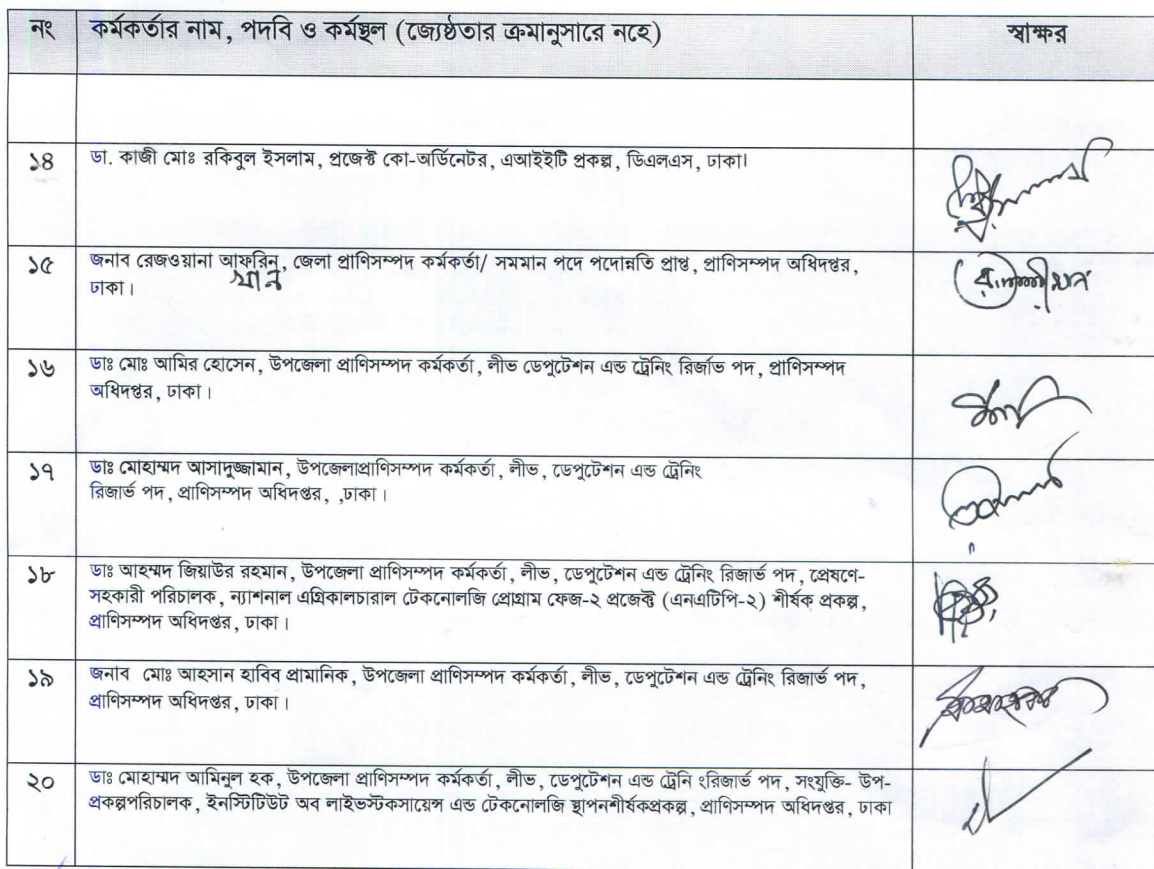 নং কর্মকর্তার নাম, পদবি ও কর্মস্থল (জ্যেষ্ঠতার ক্রমানুসারে নহে) স্বাক্ষর
১৪ ডা. কাজী মোঃ রকিবুল ইসলাম, প্রজেক্ট কো-অর্ডিনেটর, এআইইটি প্রকল্প, ডিএলএস, ঢাকা।
১৫ জনাব রেজওয়ানা আফরিন, জেলা প্রাণিসম্পদ কর্মকর্তা/ সমমান পদে পদোন্নতি প্রাপ্ত, প্রাণিসম্পদ অধিদপ্তর,
ঢাকা। খান
১৬ ডাঃ মোঃ আমির হোসেন, উপজেলা প্রাণিসম্পদ কর্মকর্তা, লীভ ডেপুটেশন এন্ড ট্রেনিং রিজার্ভ পদ, প্রাণিসম্পদ
অধিদপ্তর, ঢাকা।
১৭ ডাঃ মোহাম্মদ আসাদুজ্জামান, উপজেলাপ্রাণিসম্পদ কর্মকর্তা, লীভ, ডেপুটেশন এন্ড ট্রেনিং
রিজার্ভ পদ, প্রাণিসম্পদ অধিদপ্তর, ,ঢাকা।
১৮ ডাঃ আহম্মদ জিয়াউর রহমান, উপজেলা প্রাণিসম্পদ কর্মকর্তা, লীভ, ডেপুটেশন এন্ড ট্রেনিং রিজার্ভ পদ, প্রেষণে-
সহকারী পরিচালক, ন্যাশনাল এগ্রিকালচারাল টেকনোলজি প্রোগ্রাম ফেজ-২ প্রজেক্ট (এনএটিপি-২) শীর্ষক প্রকল্প,
প্রাণিসম্পদ অধিদপ্তর, ঢাকা।
১৯ জনাব মোঃ আহসান হাবিব প্রামানিক, উপজেলা প্রাণিসম্পদ কর্মকর্তা, লীভ, ডেপুটেশন এন্ড ট্রেনিং রিজার্ভ পদ,
প্রাণিসম্পদ অধিদপ্তর, ঢাকা।
২০ ডাঃ মোহাম্মদ আমিনুল হক, উপজেলা প্রাণিসম্পদ কর্মকর্তা, লীভ, ডেপুটেশন এন্ড ট্রেনি ংরিজার্ভ পদ, সংযুক্তি- উপ-
প্রকল্পপরিচালক, ইনস্টিটিউট অব লাইভস্টকসায়েন্স এন্ড টেকনোলজি স্থাপনশীর্ষকপ্রকল্প, প্রাণিসম্পদ অধিদপ্তর, ঢাকা